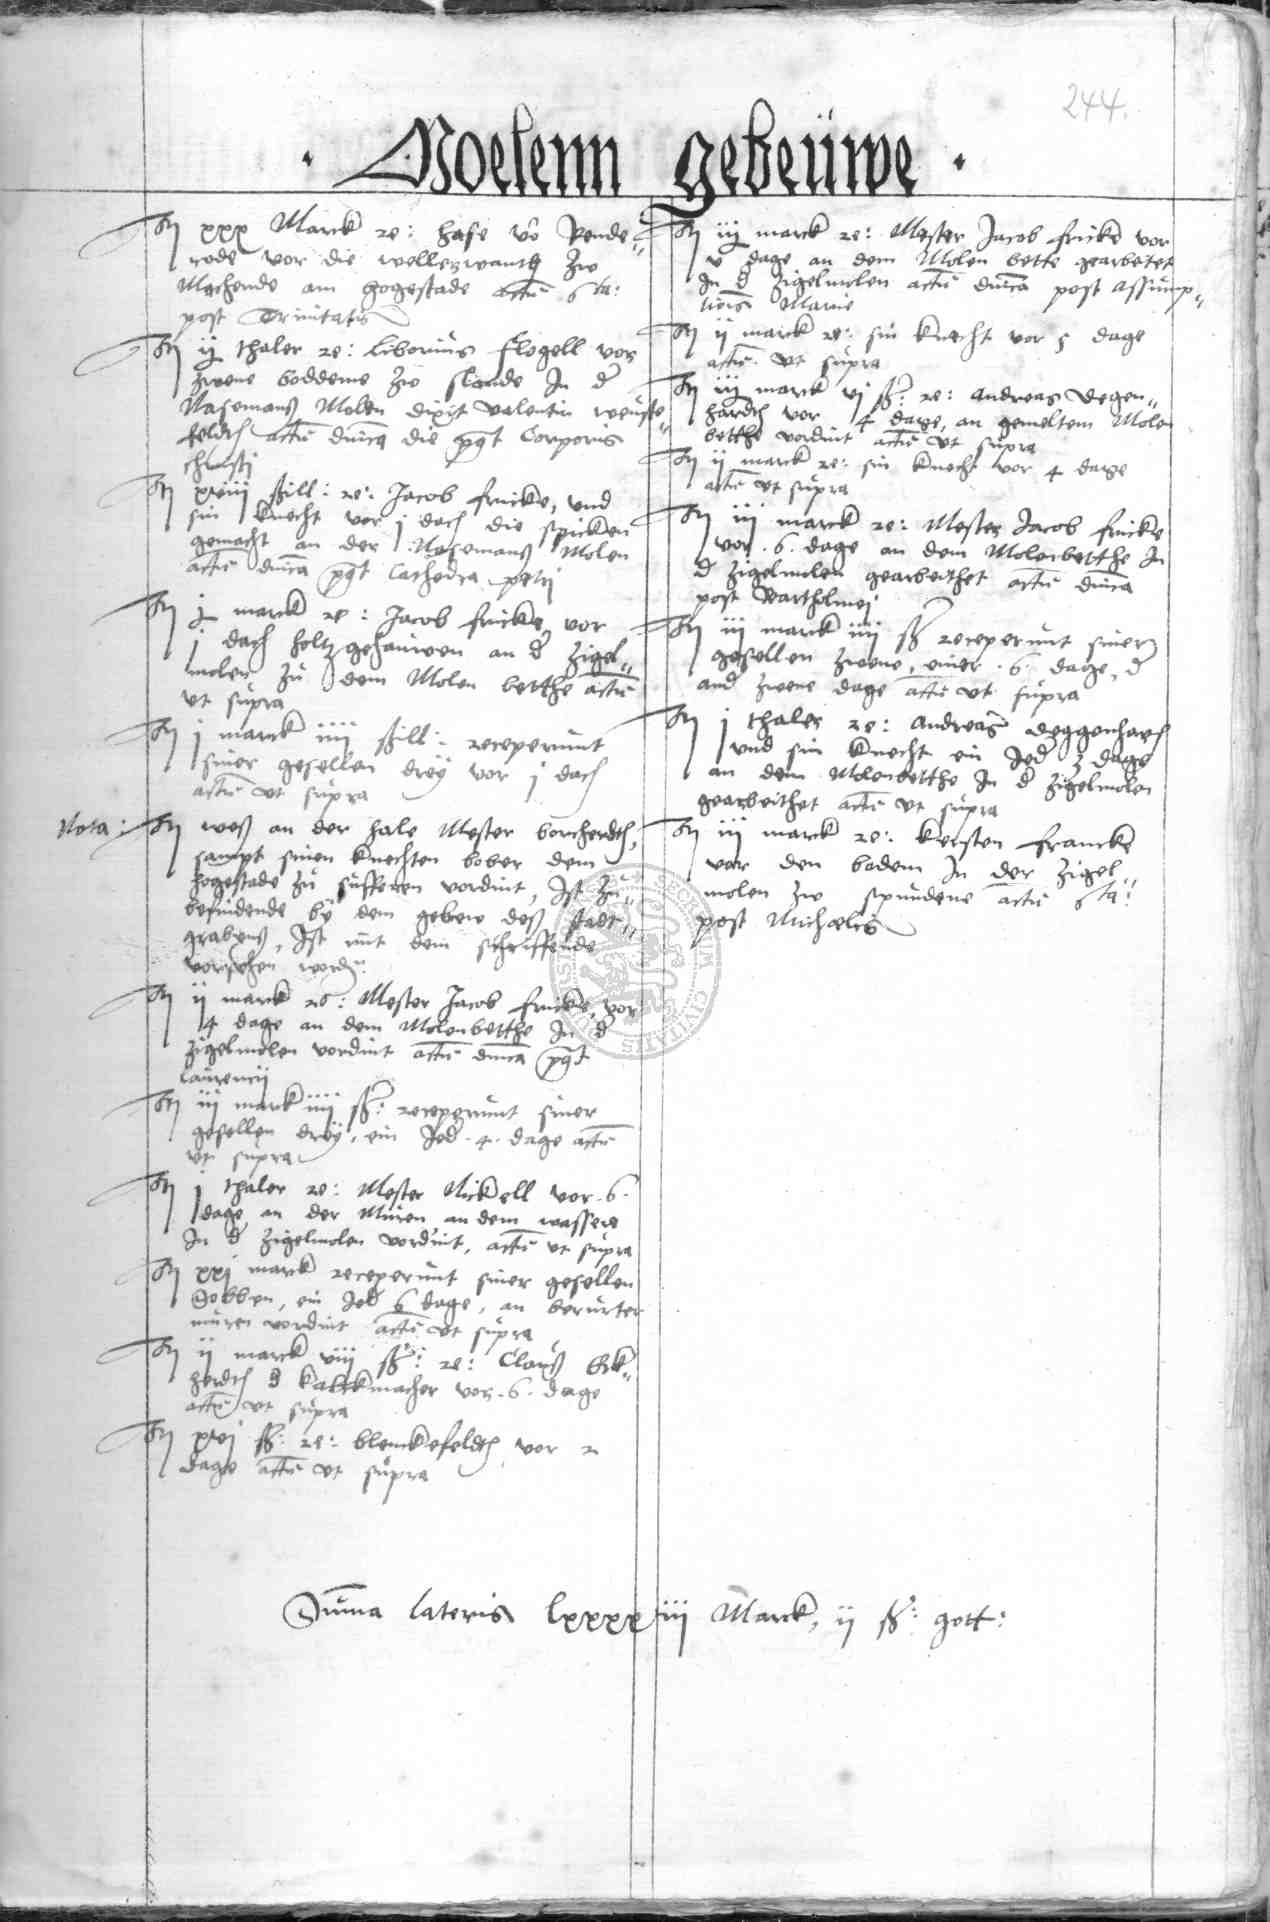 244.
· Moelenn gebeüwe ·
Itj xxx Marck re: Hase vō Rende„
rode vor die wellerwantt zw
Machende am hogestade actū 6ta:
post Trinitatis
Itj ij thaler re: Liborius Flogell vor
zwene boddeme zw slande In d
Nasemanß Molen dixit valentin wenste„
feldth actū dnīca die pꝗt Corporis
christj
Itj xviii ßill: re: Jacob fricke, vnd
sin knecht vor j dach die spicken
gemacht an der Nasemanß Molen
actū dnīca pꝗt Cathedra petrj
Itj j marck re: Jacob fricke, vor
j dach holtz gehauwen an d Zigel„
molen zu dem Molen betthe actū
vt supra
Itj j marck iiii ßill: receperunt
siner gesellen dreÿ vor j dach
actū vt supra
Nota: Itj weß an der hale Mester borcherdth,
sampt sinen knechten bober dem
hogestade zu sufferen vordint, Ist zu„
befindende bÿ dem gebew deß stadt„
grabenß, Ist mit dem schriffende
vorsehen wordn
Itj ij marck re: Mester Jacob fricke, vor
4 dage an dem Molenbetthe In d
Zigelmolen vordint actū dnīca pꝗt
Laurencij
Itj iii marck iiii ß: receperunt siner
gesellen dreÿ, ein Jed .4. dage actū
vt supra
Itj j thaler re: Mester Nickell vor .6.
dage an der Muren an dem wassere
In d Zigelmolen vordint, actū vt supra
Itj xxj marck receperunt siner gesellen
Sobben, ein Jed 6 dage, an berurter
muren vordint actū vt supra
Itj ij marck viii ß: re: Clauß Erk„
herdth d kalckmacher vor .6. dage
actū vt supra
Itj xvj ß: re: blenckefeldth vor 2
dage actū vt supra
Itj iij marck re: Mester Jacob fricke vor
v dage an dem Molen bette gearbetet
In d Zigelmolen actū dnīca post assump„
tionis Marie
Itj ij marck re: sin knecht vor 5 dage
actū vt supra
Itj iij marck vj ß: re: andreas Degen„
hardth vor 4 dage, an gemeltem Molen
betthe vordint actū vt supra
Itj ij marck re: sin knecht vor 4 dage
actū vt supra
Itj iij marck re: Mester Jacob fricke
vor .6. dage an dem Molenbetthe In
d Zigelmolen gearbeithet actū dnīca
post Bartholmej
Itj iii marck iiij ß receperunt siner
gesellen zwene, einer .6. dage, d
and zwene dage actū vt supra
Itj j thaler re: andreas Deggenharth
vnd sin knecht ein Jed 3 dage
an dem Molenbetthe In d Zigelmolen
gearbeithet actū vt supra
Itj iij marck re: kersten francke
vor den bodem In der Zigel„
molen zw spundene actū 6ta:
post Michaelis
Sūma lateris lxxxxiij Marck, ij ß: gott: